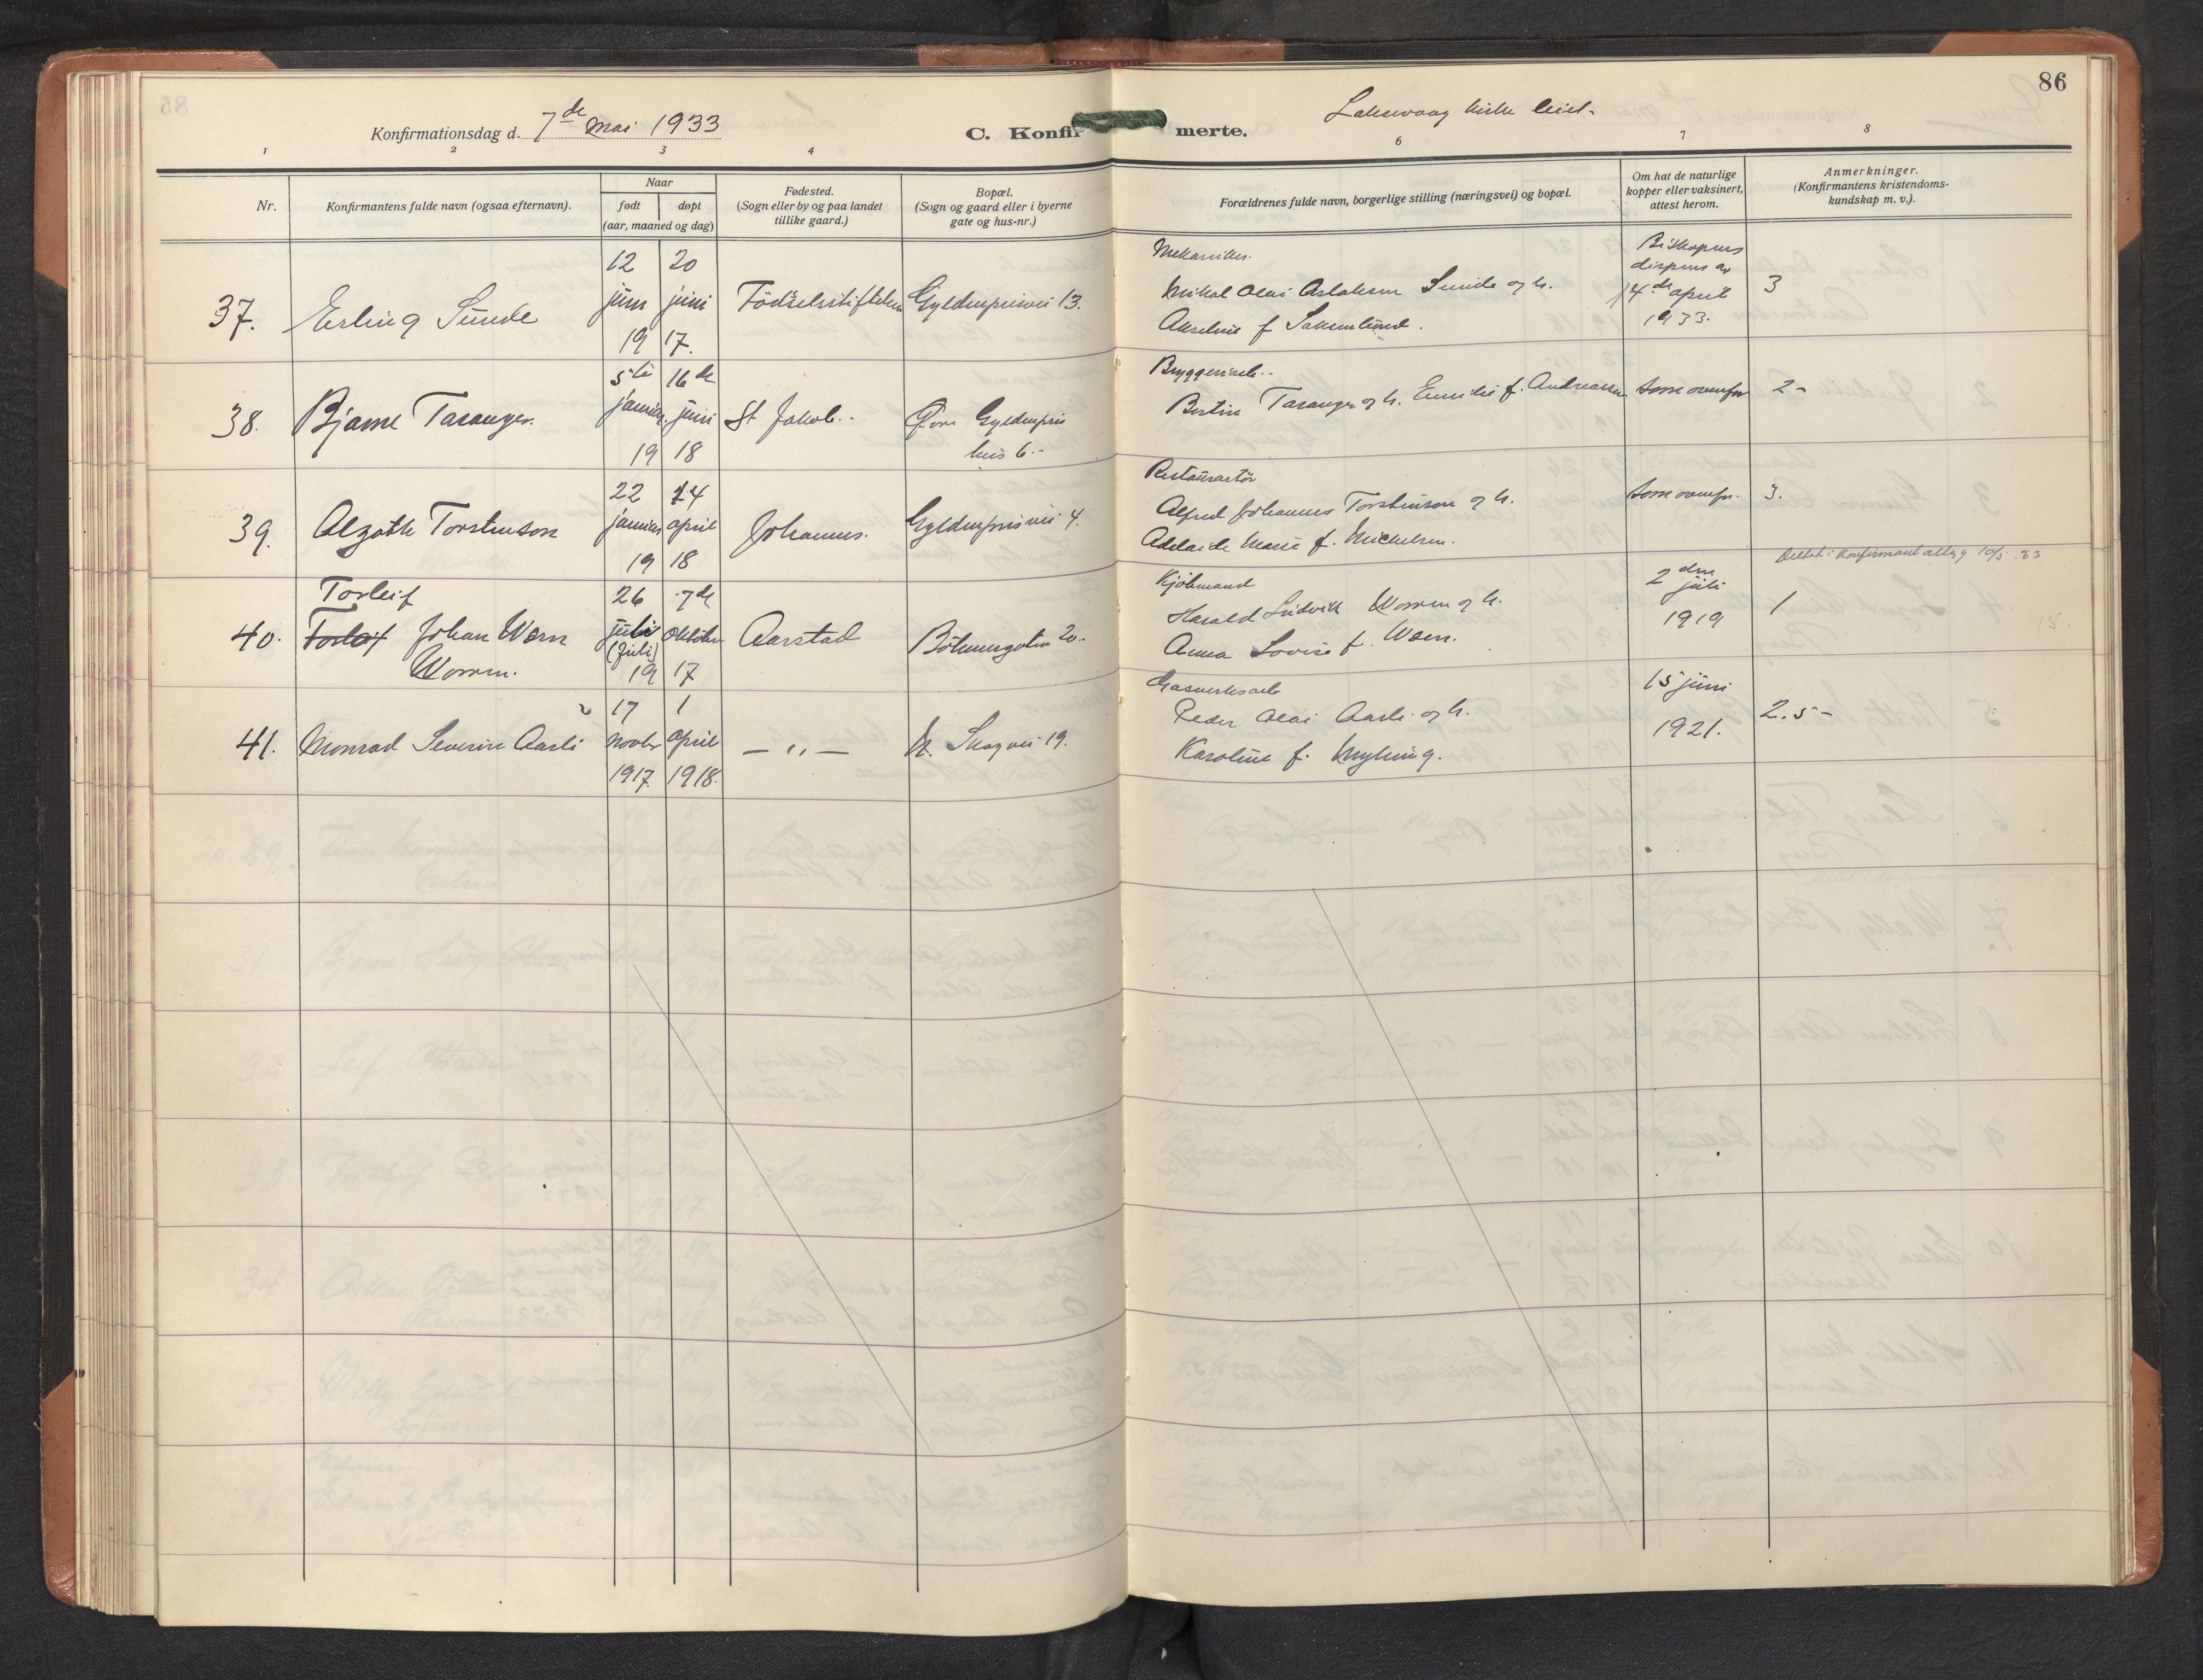 86
Konfirmationsdag d. 7de mai 1933
C. Konfirmerte.
Laksevaag kirke
1 2 3 4 6 7 8
Nr.
Konfirmantens fulde navn (ogsaa efternavn).
Naar
født døpt
(aar, maaned og dag)
Fødested.
(Sogn eller by og paa landet
tillike gaard.)
Bopæl.
(Sogn og gaard eller i byerne
gate og hus-nr.)
Forældrenes fulde navn, borgerlige stilling (næringsvei) og bopæl.
Om hat de naturlige
kopper eller vaksinert,
attest herom.
Anmerkninger.
(Konfirmantens kristendoms-
kundskap m. v.).
37. Erling Sunde
12 juni 19
20 juni 17.
Födselsstiftelsen
Gyldenprisvei 13.
Mekaniker.
Mikal Olai Aslaksen Sunde og h.
f.
Biskopens
dispens av
14de april
1933.
3
38. Bjarne Taranger.
5te januar 19
16de juni 18
St Jakob.
Øvre Gyldenpris
hus 6.
Bryggeriarb.
Taranger og h. Emilie f. Andreassen
Som ovenfor
2-
39. Torstenson
22 januar 19
14 april 18
Johannes.
Gyldenprisvei 4.
Restauratør
Alfred Johannes Torstenson og h.
Adelaide Marie f. Michelsen.
Som ovenfor.
3.
40. Torleif
Torleif Johan Wern
Worren.
26 juli (Juli) 19
7de oktober 17
Aarstad
Böhmergaten 20.
Kjöbmand
Harald Ludvik Worren og h.
Anna Lovise f. Wern.
2den juli
1919
1
Deltat i Konfirmantalterg. 10/5. 33
15.
41. Monrad Severin Aarli
17 novbr 1917.
1 april 1918.
— " —
N. Skogvei 19.
Gasverksarb
Peder Olai Aarli og h.
Karoline f. Myhring.
15 juni
1921.
2.5-